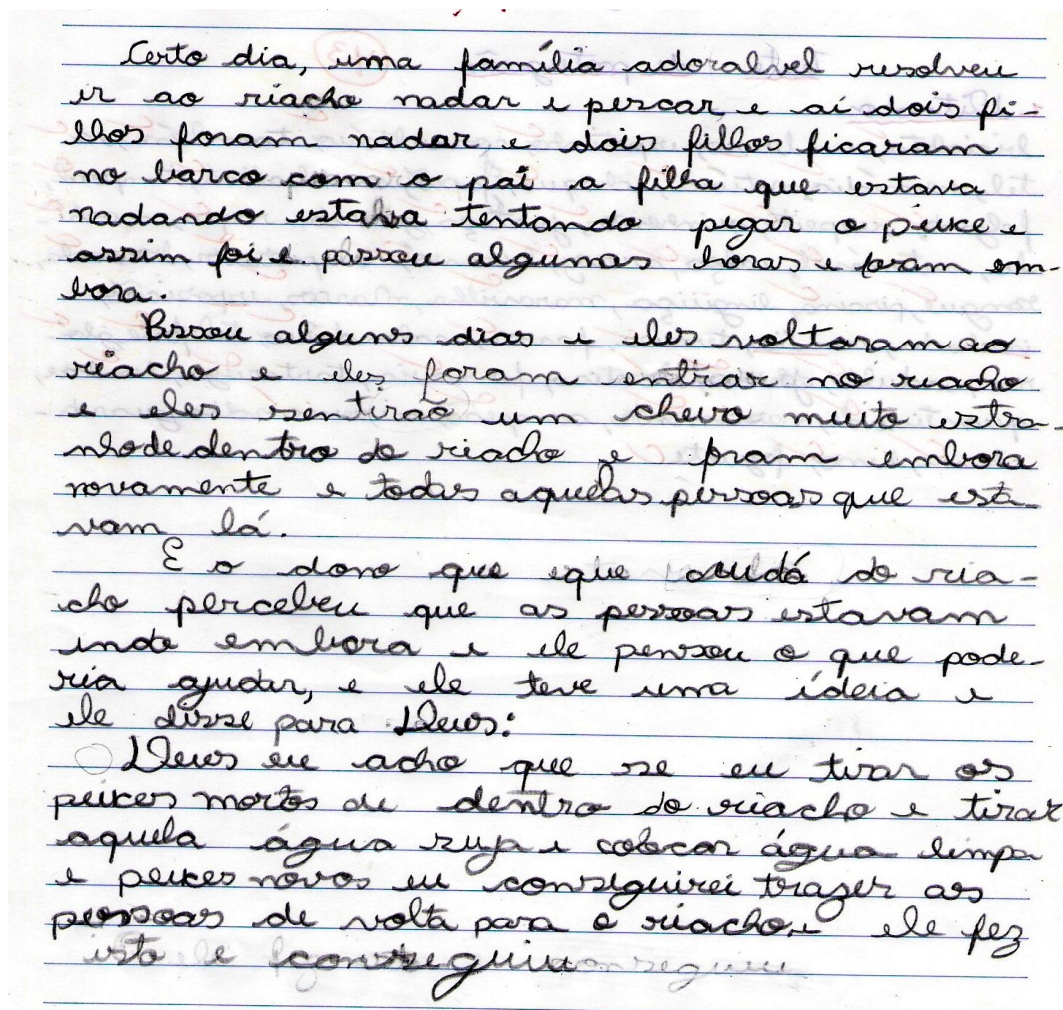 Certo dia, uma família adoralvel resolveu
ir ao riacho nadar e pescar, e aí dois fi-
lhos foram nadar, e dois filhos ficaram
no barco com o pai a filha que estava
nadando estava tentando pegar o peixe e
assim foi e passou algumas horas e foram em-
bora.
Passou alguns dias e eles voltaram ao
riacho e eles foram entrar no riacho
e eles sentirão um cheiro muito estra-
nho de dentro do riacho e foram embora
novamente e todas aquelas pessoas que esta-
vam lá.
E o dono que eque cuidá do ria-
cho percebeu que as pessoas estavam
indo embora e ele pensou o que pode-
ria ajudar, e ele teve uma ideia e
ele disse para Deus:
Deus eu acho que se eu tirar os
peixes mortos de dentro do riacho e tirar
aquela água suja e colocar água limpa
e peixes novos eu conseguirei trazer as
pessoas de volta para o riacho, e ele fez
isto e conseguiu